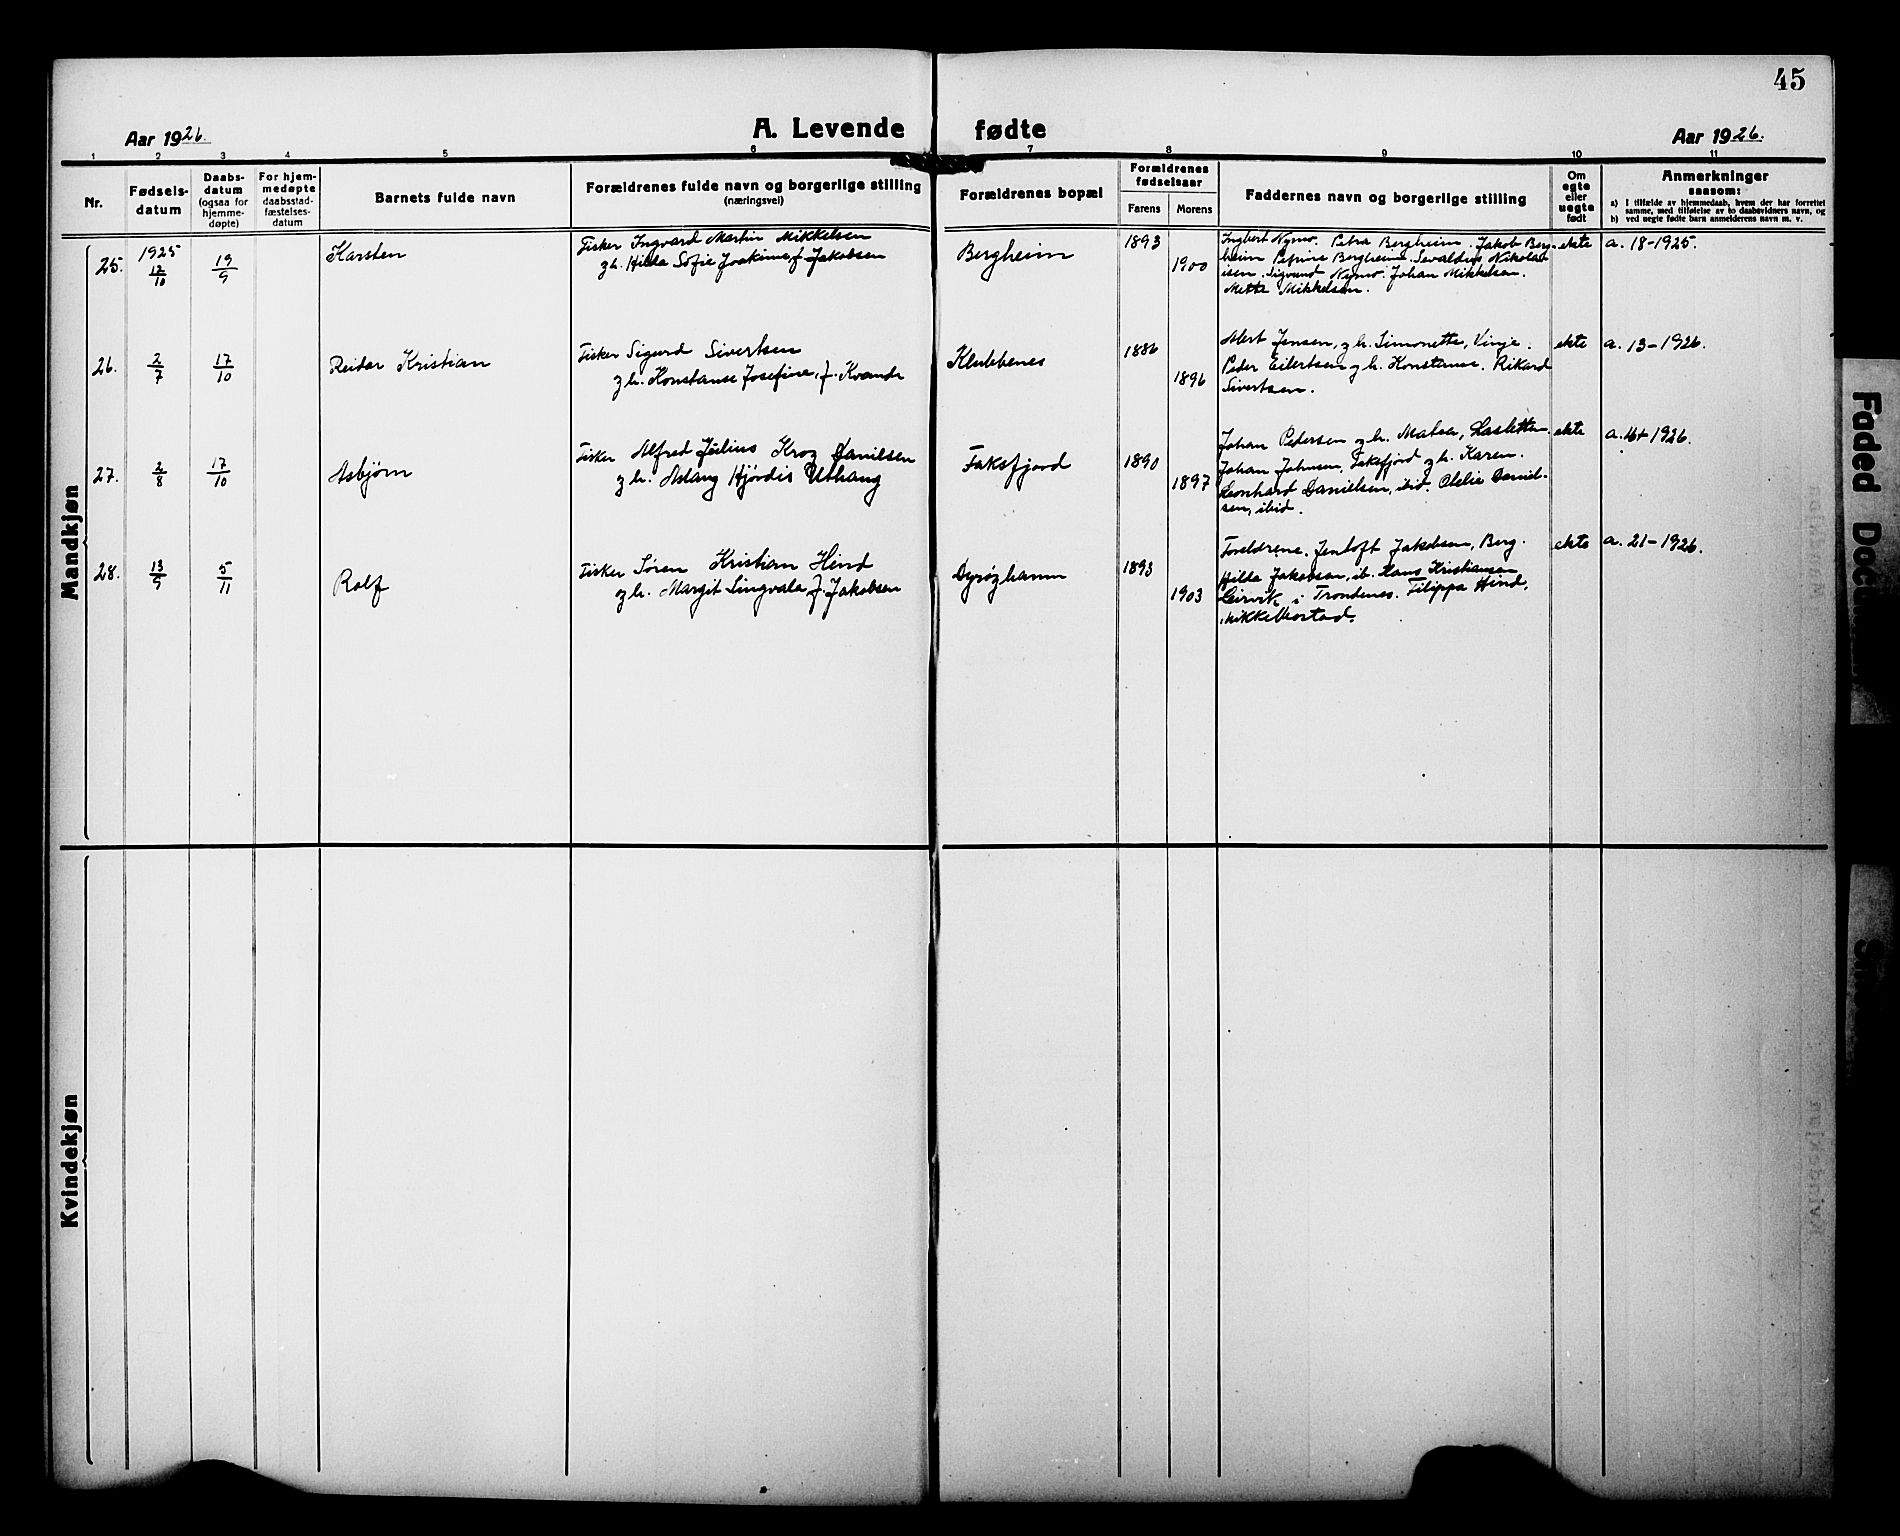 45
Aar 1926.
A. Levende fødte
Aar 1926.
1 2 3 4 5 6 7 8 9 10 11
Nr.
Fødsels-
datum
Daabs-
datum
(ogsaa for
hjemme-
døpte)
For hjem-
medøpte
daabsstad-
fæstelses-
datum
Barnets fulde navn
Forældrenes fulde navn og borgerlige stilling
(næringsvei)
Forældrenes bopæl
Forældrenes
fødselsaar
Farens
Morens
Faddernes navn og borgerlige stilling
Om
egte
eller
uegte
født
Anmerkninger
saasom:
a) I tilfælde av hjemmedaab, hvem der har forrettet
samme, med tilføielse av to daabsvidners navn, og
b) ved uegte fødte barn anmelderens navn m. v.
Mandkjøn
25.
1925
12/10
19/9
Karsten
Fisker Ingvard Martin Mikkelsen
og h. Hilda Sofie Joakime f. Jakobsen
Bergheim
1893
1900
Ingbert Nymo. Petra Bergheim. Jakob Berg-
heim Petrine Bergheim. Sevaldus Nikolai
isen. Sigvund Nymo. Johan Mikkelsen.
Mette Mikkelsen.
ekte
a. 18-1925.
26.
2/7
17/10
Reidar Kristian
Fisker Sigurd Sivertsen
og h. Konstanse Josefine, f. Kvande
Klubbenes
1886
1896
Albert Jensen, og h. Simonette, Vinje.
Peder Eilertsen og h. Konstanse. Rikard
Sivertsen.
ekte
a. 13-1926.
27.
2/8
17/10
Asbjørn
Fisker Alfred Julius Krog Danielsen
og h. Aslaug Hjørdis Uthaug
Faksfjord
1890
1897
Johan Pedersen og h. Matea,
Johan Johnsen, Faksfjord og h. Karen.
Leonhard Danielsen, ibid. Otelie Daniel-
sen, ibid.
ekte
a. 1926.
28.
13/9
5/11
Rolf
Fisker Søren Kristian Hind
og h. Margit Lingvala f. Jakobsen
Dyrøyhamn
1893
1903
Foreldrene. Jentoft Jakobsen, Berg.
Hilda Jakobsen, ib. Hans Kristiansen
Leirvik i Trondenes. Filippa Hind,
Mikkelbostad.
ekte
a. 21-1926.
Kvindekjøn
Faded Doc